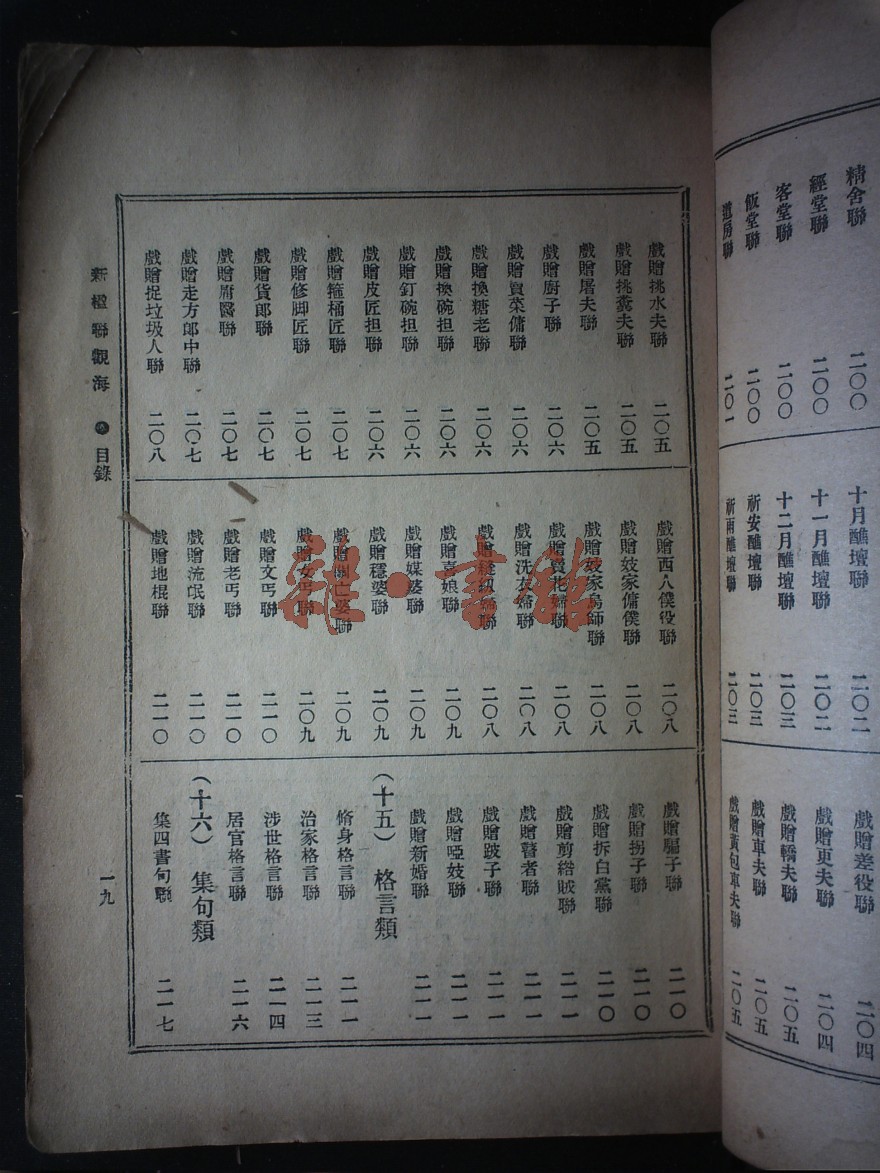 精舍聯 二〇〇
經堂聯 二〇〇
客堂聯 二〇〇
飯堂聯 二〇〇
道房聯 二〇一
十月醮壇聯 二〇二
十一月醮壇聯 二〇二
十二月醮壇聯 二〇三
祈安醮壇聯 二〇三
祈雨醮壇聯 二〇三
戲贈差役聯 二〇四
戲贈更夫聯 二〇四
戲贈轎夫聯 二〇五
戲贈車夫聯 二〇五
戲贈黃包車夫聯 二〇五
戲贈挑水夫聯 二〇五
戲贈挑糞夫聯 二〇五
戲贈屠夫聯 二〇五
戲贈廚子聯 二〇六
戲贈賣菜傭聯 二〇六
戲贈換糖老聯 二〇六
戲贈換碗担聯 二〇六
戲贈釘碗担聯 二〇六
戲贈皮匠担聯 二〇六
戲贈箍桶匠聯 二〇七
戲贈修脚匠聯 二〇七
戲贈貨郎聯 二〇七
戲贈庸醫聯 二〇七
戲贈走方郎中聯 二〇七
戲贈捉垃圾人聯 二〇八
戲贈西人僕役聯 二〇八
戲贈妓家傭僕聯 二〇八
戲贈妓家烏師聯 二〇八
戲贈賣花婦聯 二〇八
戲贈洗衣婦聯 二〇八
戲贈縫紉婦聯 二〇八
戲贈喜娘聯 二〇九
戲贈媒婆聯 二〇九
戲贈穩婆聯 二〇九
戲贈關亡婆聯 二〇九
戲贈女丐聯 二〇九
戲贈文丐聯 二一〇
戲贈老丐聯 二一〇
戲贈流氓聯 二一〇
戲贈地棍聯 二一〇
戲贈騙子聯 二一〇
戲贈拐子聯 二一〇
戲贈拆白黨聯 二一〇
戲贈剪綹賊聯 二一一
戲贈瞽者聯 二一一
戲贈跛子聯 二一一
戲贈啞妓聯 二一一
戲贈新婚聯 二一一
(十五) 格言類
脩身格言聯 二一一
治家格言聯 二一三
涉世格言聯 二一四
居官格言聯 二一六
(十六) 集句類
集四書句聯 二一七
新楹聯觀海 目錄
一九
雜·書館